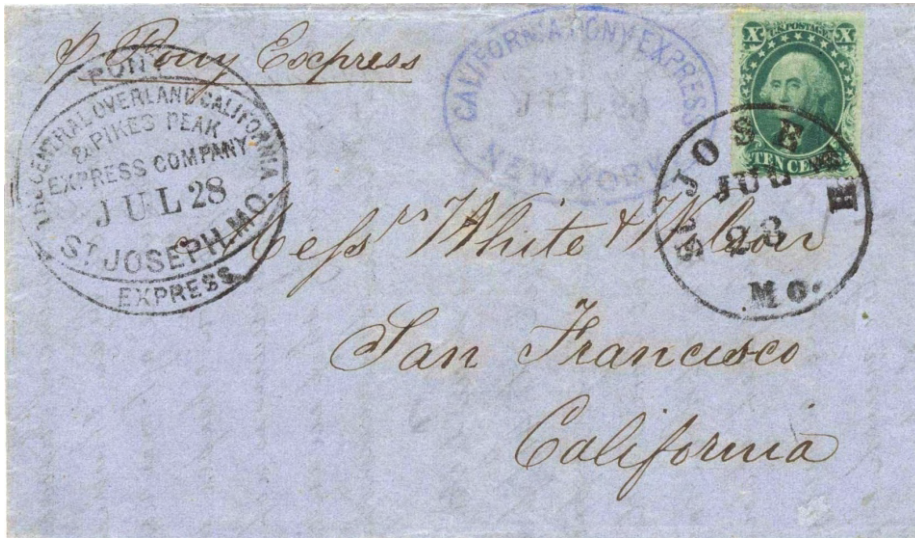 p Pony Express
PONY
THE CENTRAL OVERLAND CALIFORNIA
& PIKES PEAK
EXPRESS COMPANY
JUL 28
ST. JOSEPH, MO.
EXPRESS
CALIFORNIA PONY EXPRESS
JUL
NEW-YORK
U.S. POSTAGE
X X
TEN CENTS
ST. JOSEPH
JUL
28
MO.
Messrs White &
San Francisco
California